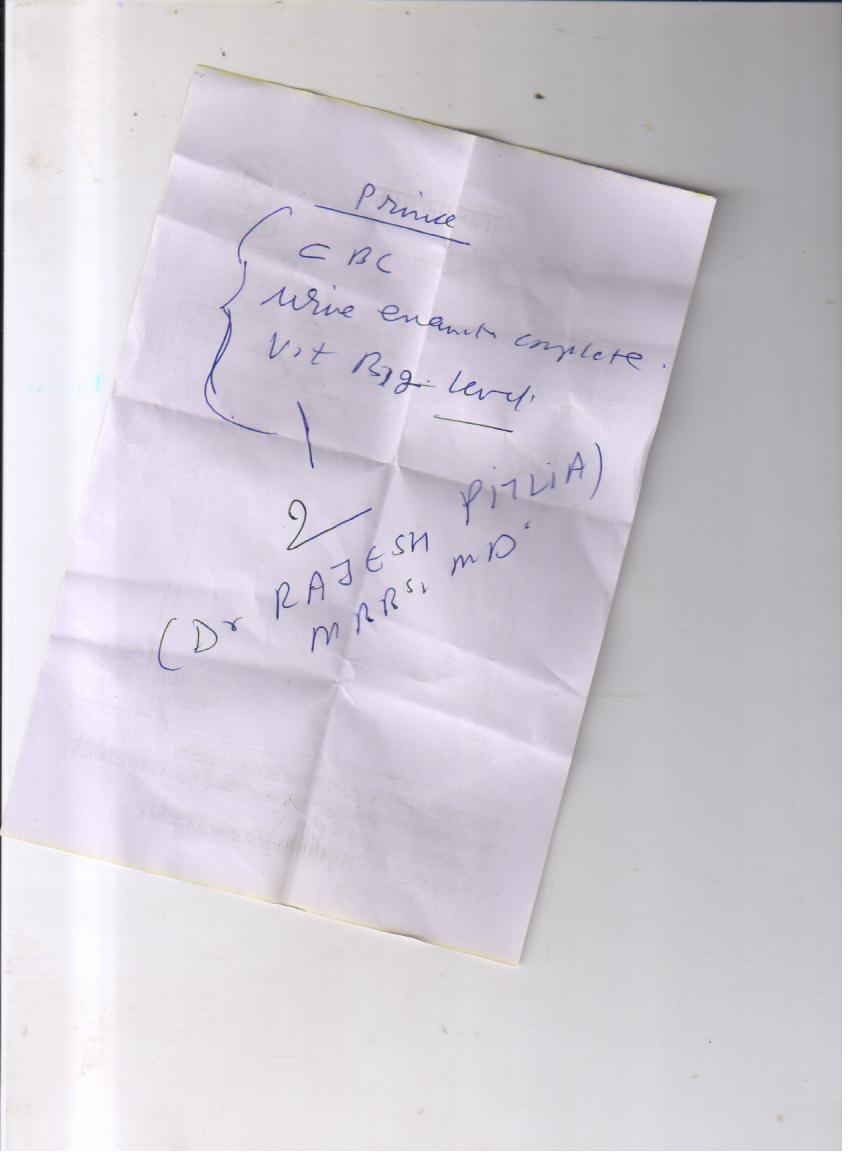 Prince
CBC
Urine examtn complete.
Vit B12 level.
(Dr RAJESH
MBBS, MD